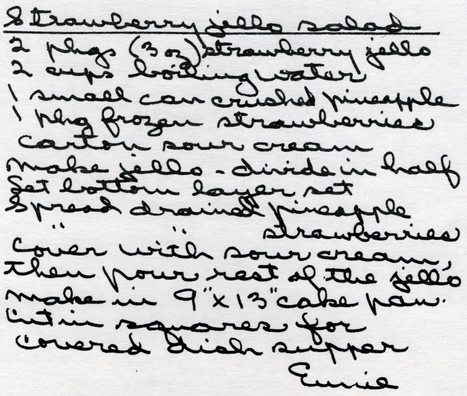 Strawberry jello salad
2 pkgs (3 oz) strawberry jello
2 cups boiling water
1 small can crushed pineapple
1 pkg frozen strawberries
carton sour cream
make jello - divide in half
Let bottom layer set
Spread drained pineapple
" " strawberries
cover with sour cream,
then pour rest of the jello
make in 9"x13" cake pan.
Cut in squares for
covered dish supper
Eunie